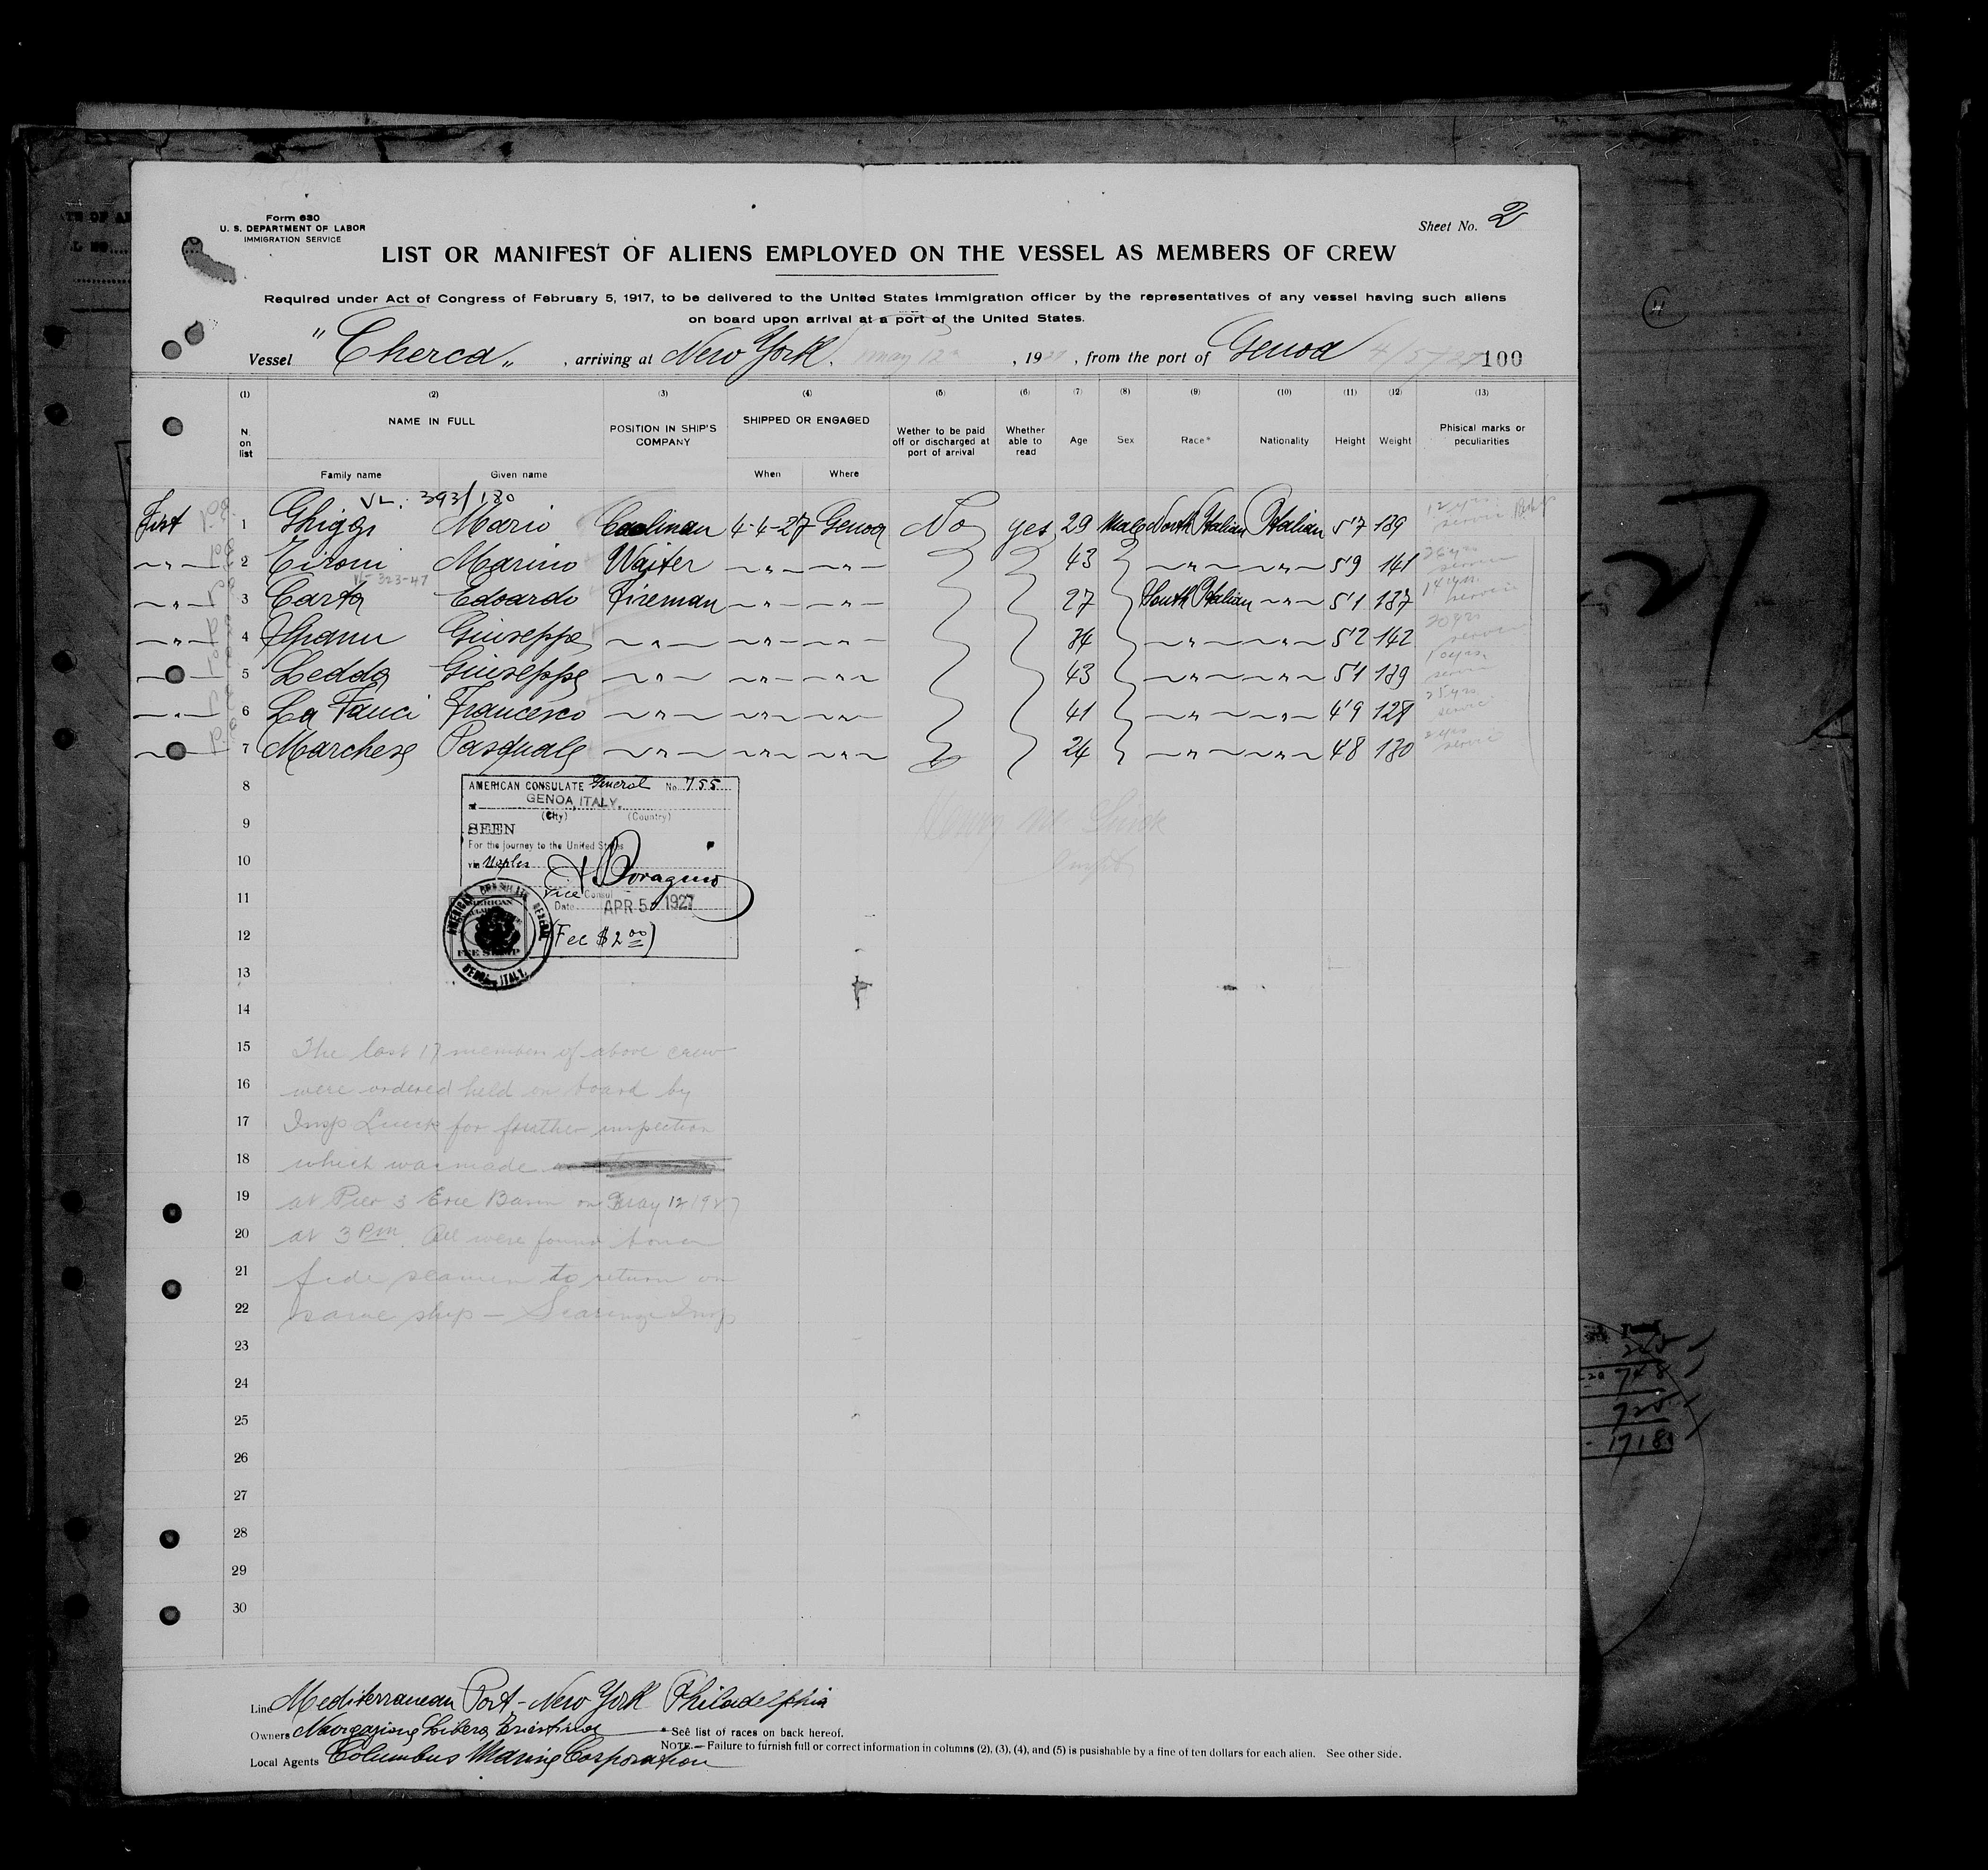 Form 630
U. S. DEPARTMENT OF LABOR
IMMIGRATION SERVICE
Sheet No. 2
LIST OR MANIFEST OF ALIENS EMPLOYED ON THE VESSEL AS MEMBERS OF CREW
Required under Act of Congress of February 5, 1917, to be delivered to the United States Immigration officer by the representatives of any vessel having such aliens
on board upon arrival at a port of the United States.
Vessel "Cherca", arriving at New York. May 12, 1927, from the port of Genoa 4/5/27 100
(1) (2) (3) (4) (5) (6) (7) (8) (9) (10) (11) (12) (13)
N. on list NAME IN FULL POSITION IN SHIP'S COMPANY SHIPPED OR ENGAGED Wether to be paid off or discharged at port of arrival Whether able to read Age Sex Race* Nationality Height Weight Phisical marks or peculiarities
Family name Given name When Where
VL. 393/180
First 1 Ghiggi Mario Coalman 4-4-27 Genoa No yes 29 Male North Italian Italian 5'7 139 12 yrs service
— " — 2 Tironi Marino Waiter — " — — " — 43 — " — — " — 5'9 141 service
VL-323-47
— " — 3 Carta Edoardo Fireman — " — — " — 27 South Italian — " — 5'1 137 14 yrs service
— " — 4 Spanu Giuseppe — " — — " — — " — 34 — " — — " — 5'2 142 20 yrs service
5 Ledda Giuseppe — " — — " — — " — 43 — " — — " — 5'1 139
— " — 6 La Fauci Francesco — " — — " — — " — 41 — " — — " — 4'9 128 25 yrs service
7 Marchese Pasquale — " — — " — — " — 24 — " — — " — 4'8 130 service
8
AMERICAN CONSULATE General No. 755
at GENOA, ITALY.
(City) (Country)
9
SEEN
For the journey to the United States
10
via Naples
Vice Consul
11
Date APR 5 1927
12
(Fee $2.00)
AMERICAN CONSULATE GENERAL
FEE STAMP
GENOA, ITALY.
13
14
15 The last 17 members of above crew
16 were ordered held on board by
17 Insp Luick for further inspection
18 which was made
19 at Pier 3 Erie Basin on May 12 1927
20 at 3 PM. All were found bona
21 fide seamen to return on
22 same ship — Insp
23
24
25
26
27
28
29
30
Line Mediterranean Port - New York Philadelphia
Owners Navigazione Libera Triestina
* See list of races on back hereof.
NOTE.— Failure to furnish full or correct information in columns (2), (3), (4), and (5) is pusishable by a fine of ten dollars for each alien. See other side.
Local Agents Columbus Marine Corporation
27